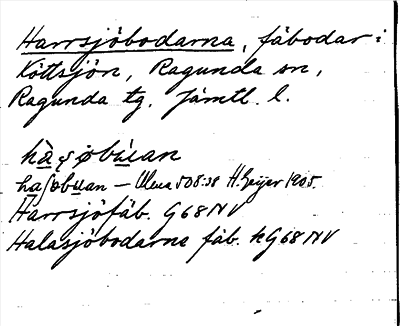 Harrsjöbodarna, fäbodar i
Köttsjön, Ragunda sn,
Ragunda tg. Jämtl. l.
hàʂøbùan
haʃøbuan — Ulma 508:38 H. Geijer 1905.
Harrsjöfäb. G68NV
Halasjöbodarne fäb. hG68NV